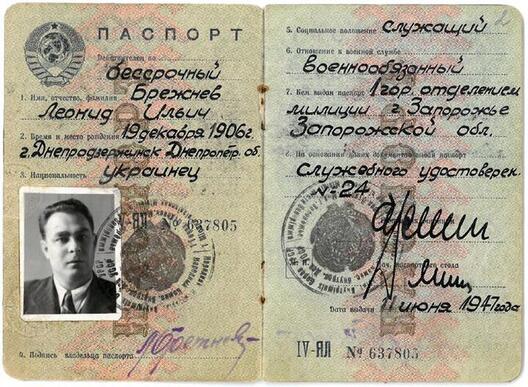 ПАСПОРТ
Действителен по
бессрочный
Брежнев
1. Имя, отчество, фамилия
Леонид Ильич
2. Время и место рождения 19 декабря 1906 г.
г. Днепродзержинск Днепропетр. об.
3. Национальность
украинец
IV-ЯЛ № 637805
4. Подпись владельца паспорта
5. Социальное положение служащий
6. Отношение к военной службе
военнообязанный
7. Кем выдан паспорт 1 гор. отделением
милиции г. Запорожье
Запорожской обл.
8. На основании каких документов выдан паспорт
служебного удостоверен.
V-24
Нач. паспортного стола
Дата выдачи 11 июня 1947 года
IV-ЯЛ № 637805
2